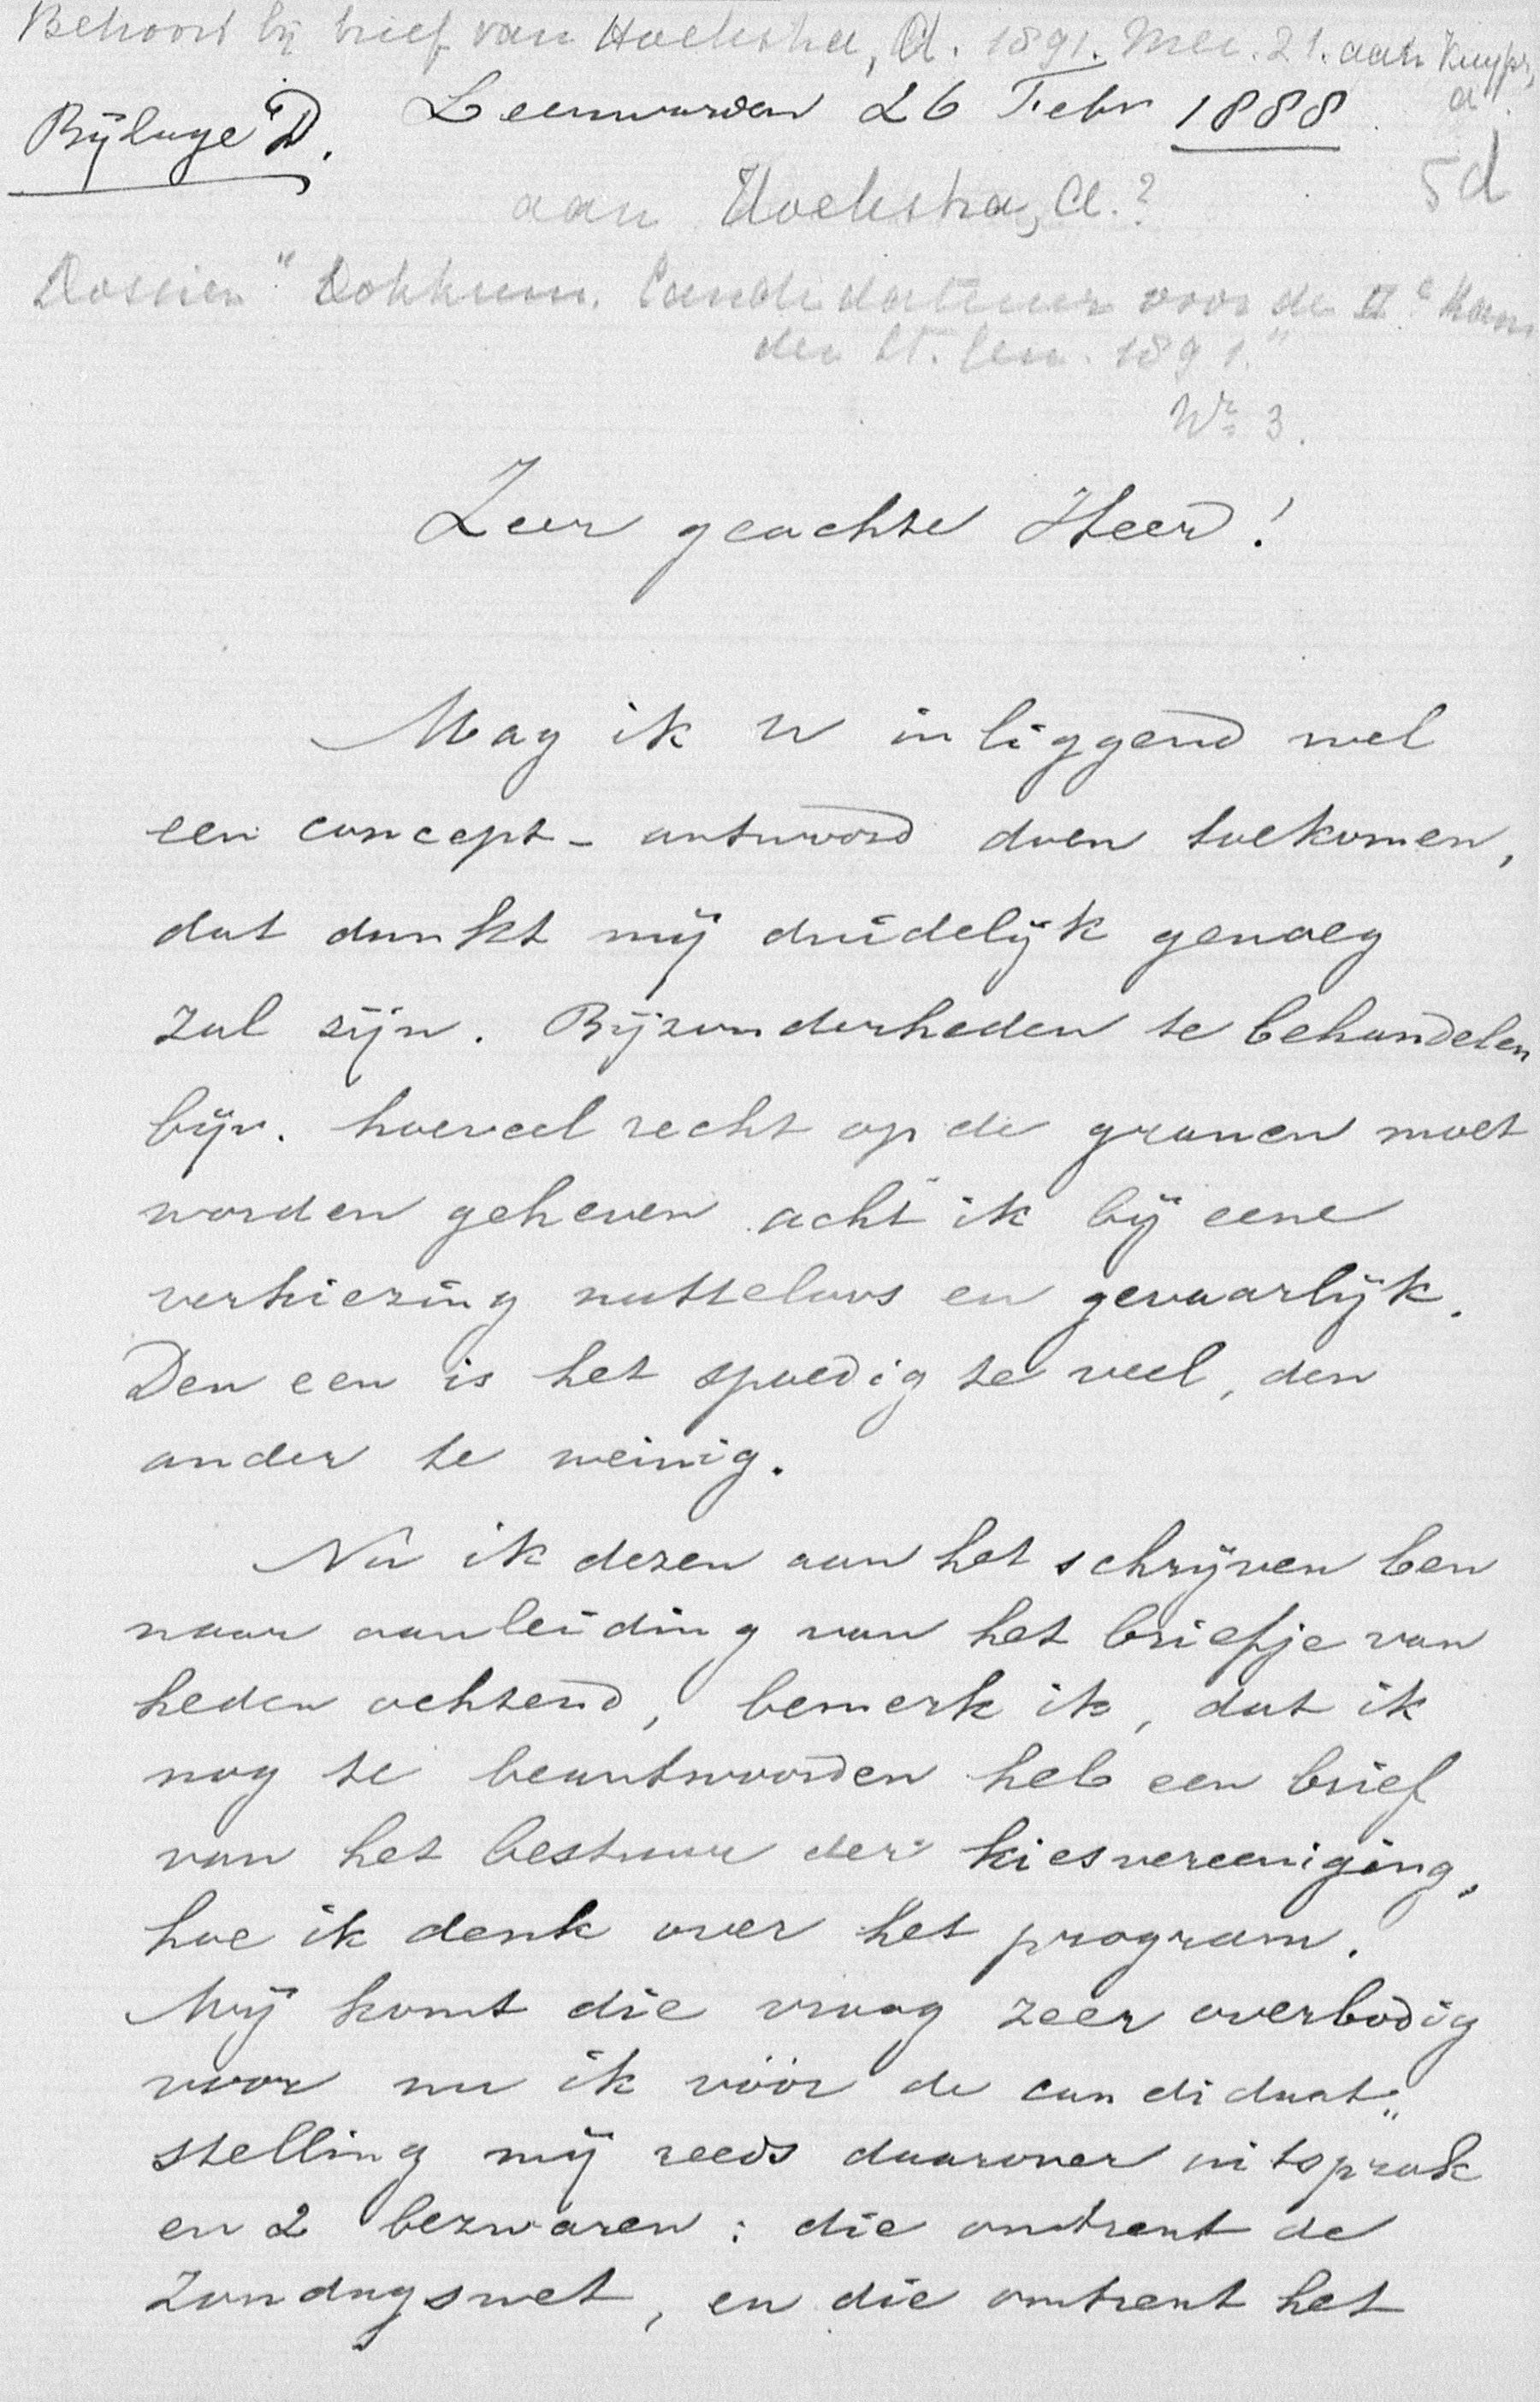 Behoort bij brief van Hoekstra, A. 1891. Mei. 21. aan Kuyper,
A.
Bijlage D. Leeuwarden 26 Febr 1888.
5d
aan Hoekstra, A.?
Dossier "Dokkum. Candidatuur voor de IIe Kam
der St. Gen. 1891."
Nr 3.
Zeer geachte Heer!
Mag ik U inliggend wel
een concept-antwoord doen toekomen,
dat dunkt mij duidelijk genoeg
zal zijn. Bijzonderheden te behandelen
bijv. hoeveel recht op de granen moet
worden geheven acht ik bij eene
verkiezing nutteloos en gevaarlijk.
Den een is het spoedig te veel, den
ander te weinig.
Nu ik dezen aan het schrijven ben
naar aanleiding van het briefje van
heden ochtend, bemerk ik, dat ik
nog te beantwoorden heb een brief
van het bestuur der kiesvereeniging,
hoe ik denk over het program.
Mij komt die vraag zeer overbodig
voor nu ik vóór de candidaat„
stelling mij reeds daarover uitsprak
en 2 bezwaren: die omtrent de
Zondagswet, en die omtrent het